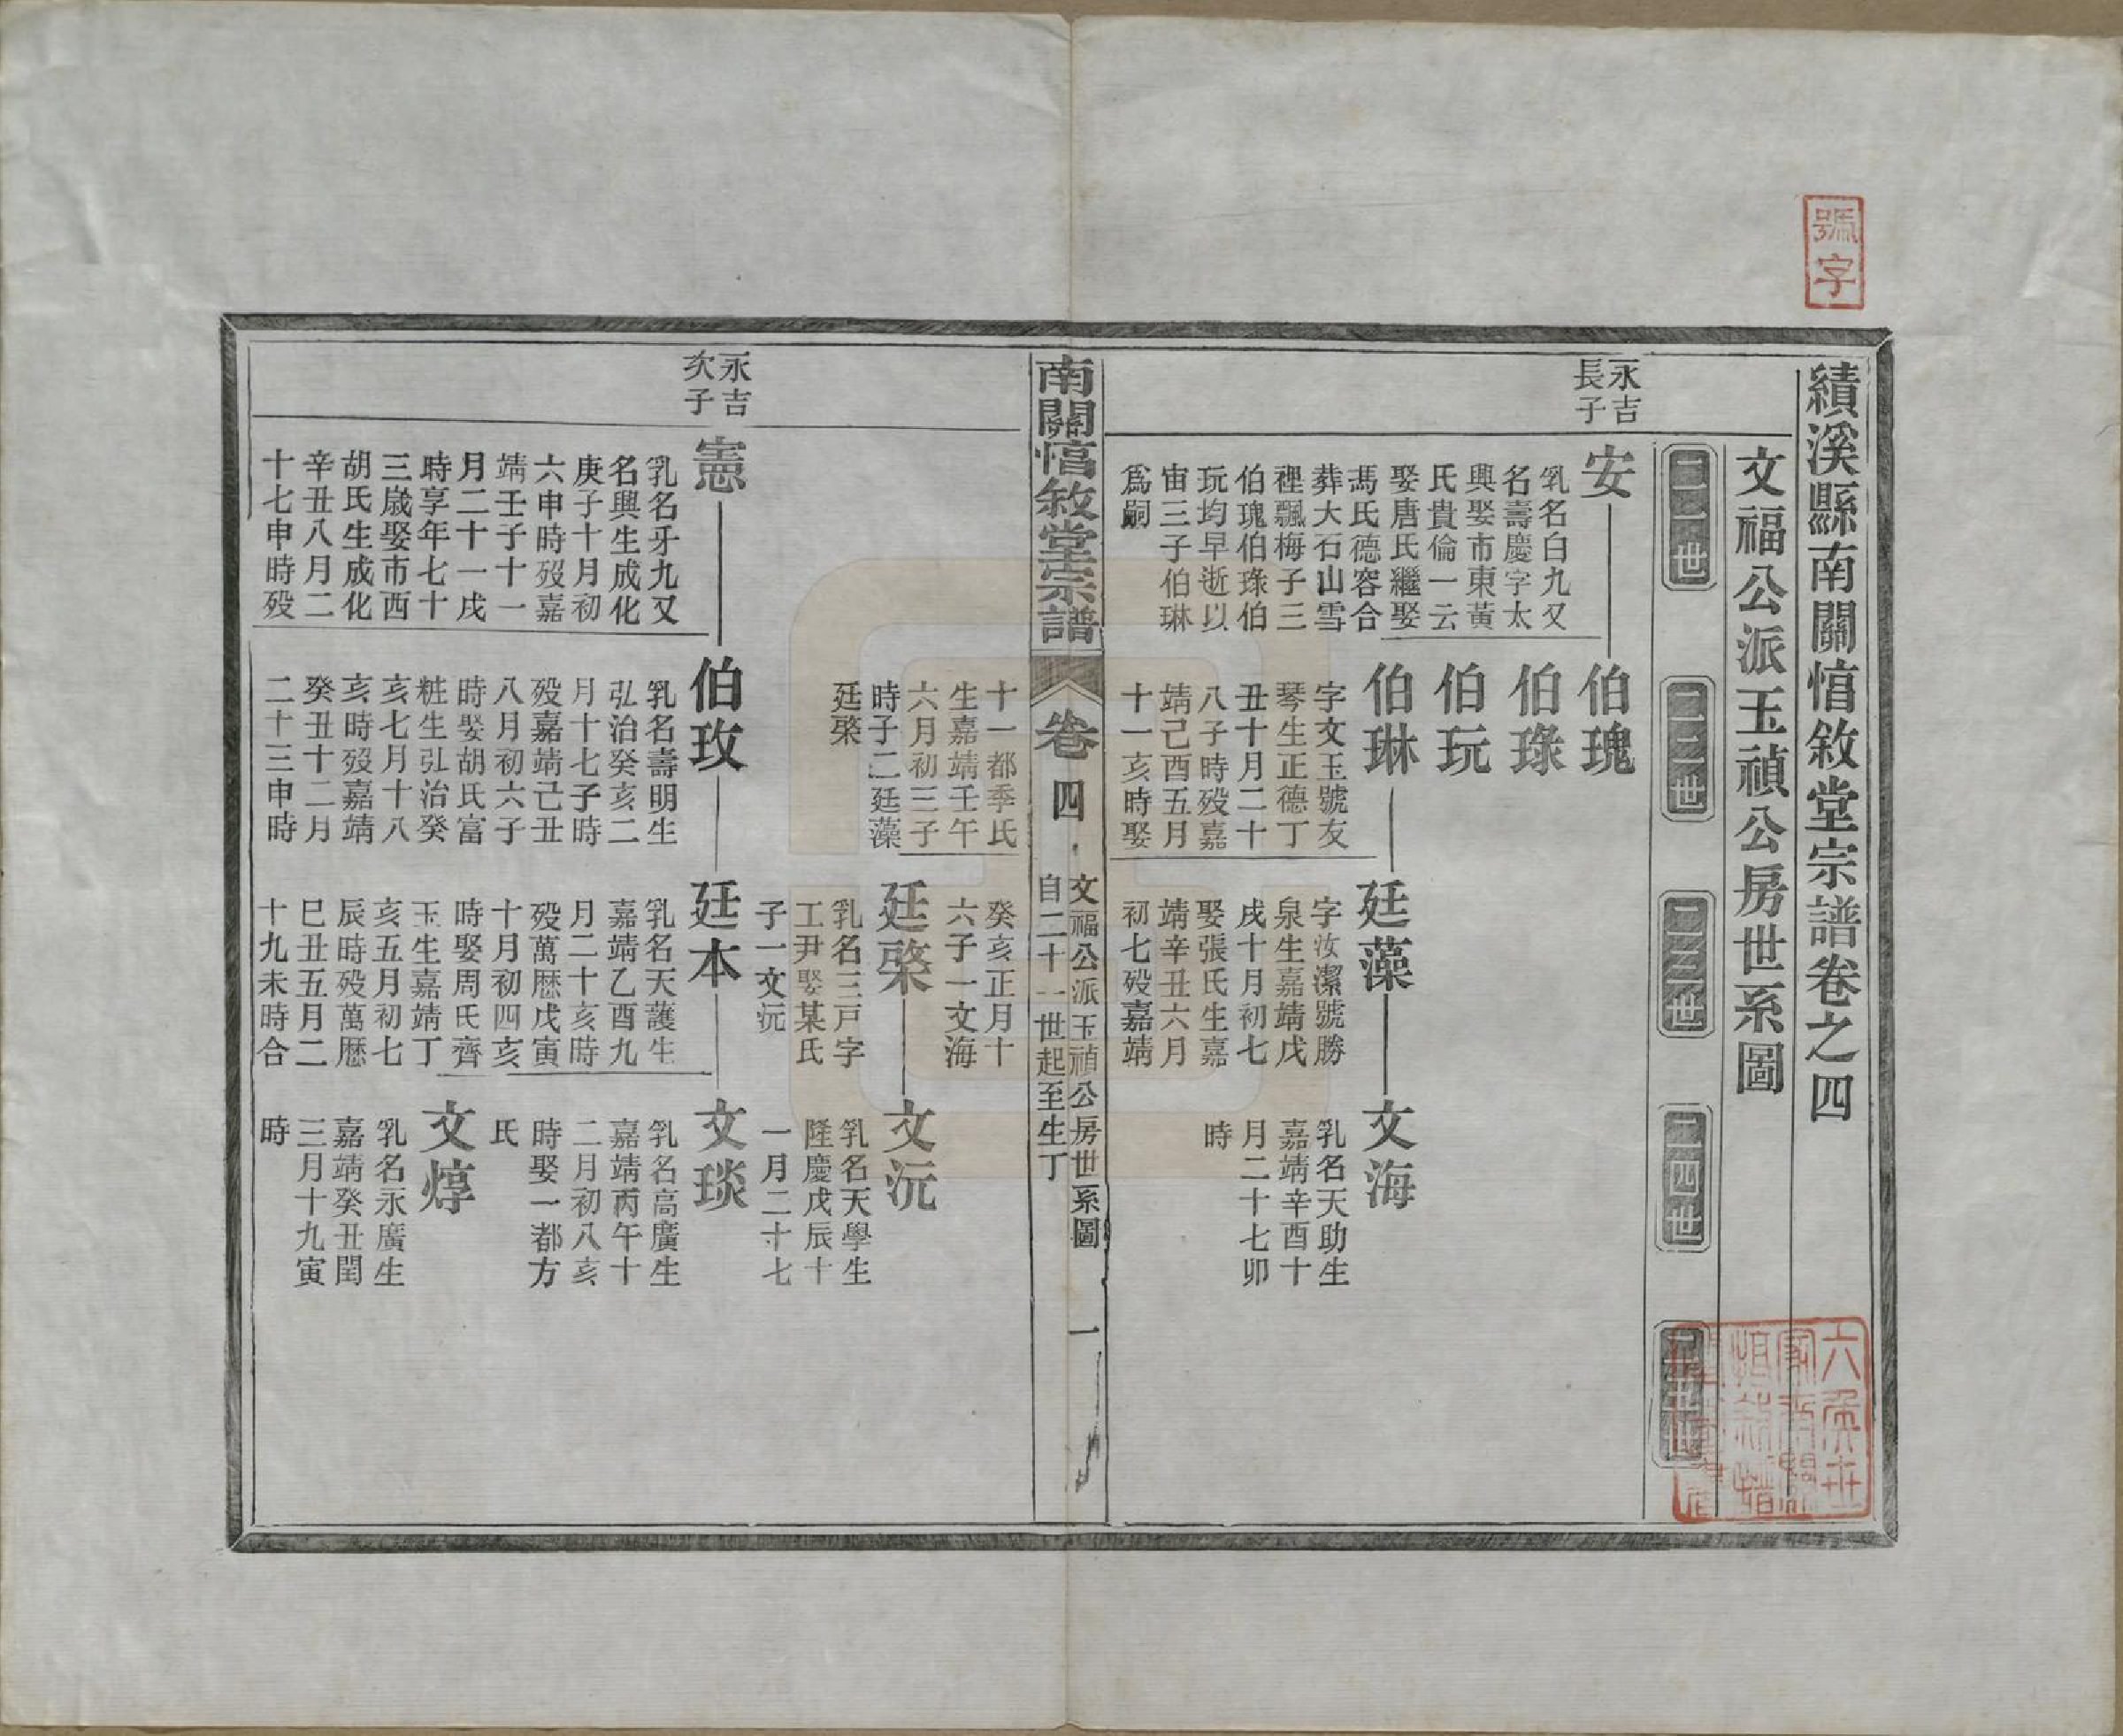 號字
績溪縣南關惇敘堂宗譜卷之四
文福公派玉禎公房世系圖
二一世
二二世
二三世
二四世
二五世
永吉
長子
安
乳名白九又
名壽慶字太
興娶市東黃
氏貴倫一云
娶唐氏繼娶
馮氏德容合
葬大石山雪
裡飄梅子三
伯瑰伯琭伯
玩均早逝以
宙三子伯琳
爲嗣
伯瑰
伯琭
伯玩
伯琳
字文玉號友
琴生正德丁
丑十月二十
八子時殁嘉
靖己酉五月
十一亥時娶
廷藻
字汝潔號勝
泉生嘉靖戊
戌十月初七
娶張氏生嘉
靖辛丑六月
初七殁嘉靖
文海
乳名天助生
嘉靖辛酉十
月二十七卯
時
南關惇敘堂宗譜
卷四
文福公派玉禎公房世系圖
自二十一世起至生丁
一
十一都季氏
生嘉靖壬午
六月初三子
時子二廷藻
廷棨
癸亥正月十
六子一文海
廷棨
乳名三戸字
工尹娶某氏
子一文沅
文沅
乳名天學生
隆慶戊辰十
一月二十七
永吉
次子
憲
乳名牙九又
名興生成化
庚子十月初
六申時殁嘉
靖壬子十一
月二十一戌
時享年七十
三歲娶市西
胡氏生成化
辛丑八月二
十七申時殁
伯玫
乳名壽明生
弘治癸亥二
月十七子時
殁嘉靖己丑
八月初六子
時娶胡氏富
粧生弘治癸
亥七月十八
亥時殁嘉靖
癸丑十二月
二十三申時
廷本
乳名天護生
嘉靖乙酉九
月二十亥時
殁萬厯戊寅
十月初四亥
時娶周氏齊
玉生嘉靖丁
亥五月初七
辰時殁萬厯
巳丑五月二
十九未時合
文琰
乳名高廣生
嘉靖丙午十
二月初八亥
時娶一都方
氏
文焞
乳名永廣生
嘉靖癸丑閏
三月十九寅
時